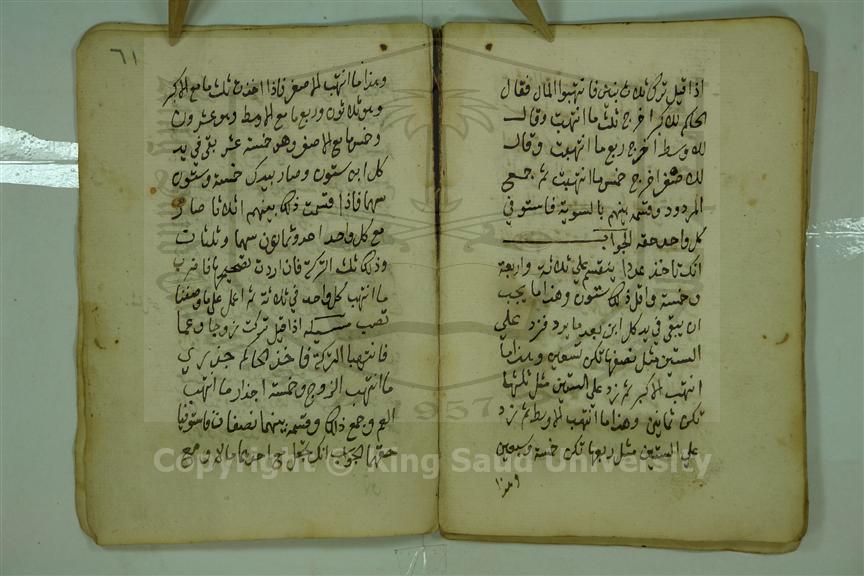 اذا قيل ترك ثلاثة بنين فانتهبوا المال فقال
الحاكم للاكبر اخرج ثلث ما انتهبت وقال
للاوسط اخرج ربع ما انتهبت وقال
للاصغر اخرج خمس ما انتهبت ثم جمع
المردود وقسمه بينهم بالسوية فاستوفي
كل واحد حقه الجواب
انك تاخذ عددا ينقسم علي ثلاثة واربعة
وخمسة واقل ذلك ستون وهذا ما يجب
ان يبقي في يد كل ابن بعد ما يرد فزد علي
الستين مثل نصفها تكن تسعين وهذا ما
انتهب الاكبر ثم زد علي الستين مثل ثلثها
تكن ثمانين وهذا ما انتهب الاوسط ثم زد
علي الستين مثل ربعها تكن خمسة وسبعين
وهذا
٦١
وهذا ما انتهب الاصغر فاذا اخذت ثلث ما مع الاكبر
وهو ثلاثون وربع ما مع الاوسط وهو عشرون
وخمس ما مع الاصغر وهو خمسة عشر بقي في يد
كل ابن ستون وصار بيدك خمسة وستون
سهما فاذا قسمت ذلك بينهم اثلاثا صار
مع كل واحد احد وثمانون سهما وثلثان
وذلك ثلث التركة فان اردت تصحيحها فاضرب
ما انتهب كل واحد في ثلاثة ثم اعمل علي ما وصفنا
تصب مسئلة اذا قيل تركت زوجا وعما
فانتهبا التركة فاخذ الحاكم جذري
ما انتهب الزوج وخمسة اجذار ما انتهب
العم وجمع ذلك وقسمه بينهما نصفان فاستوفيا
حقهما الجواب انك تجعل مع احدهما مالا ومع
Copyright © King Saud University
1957